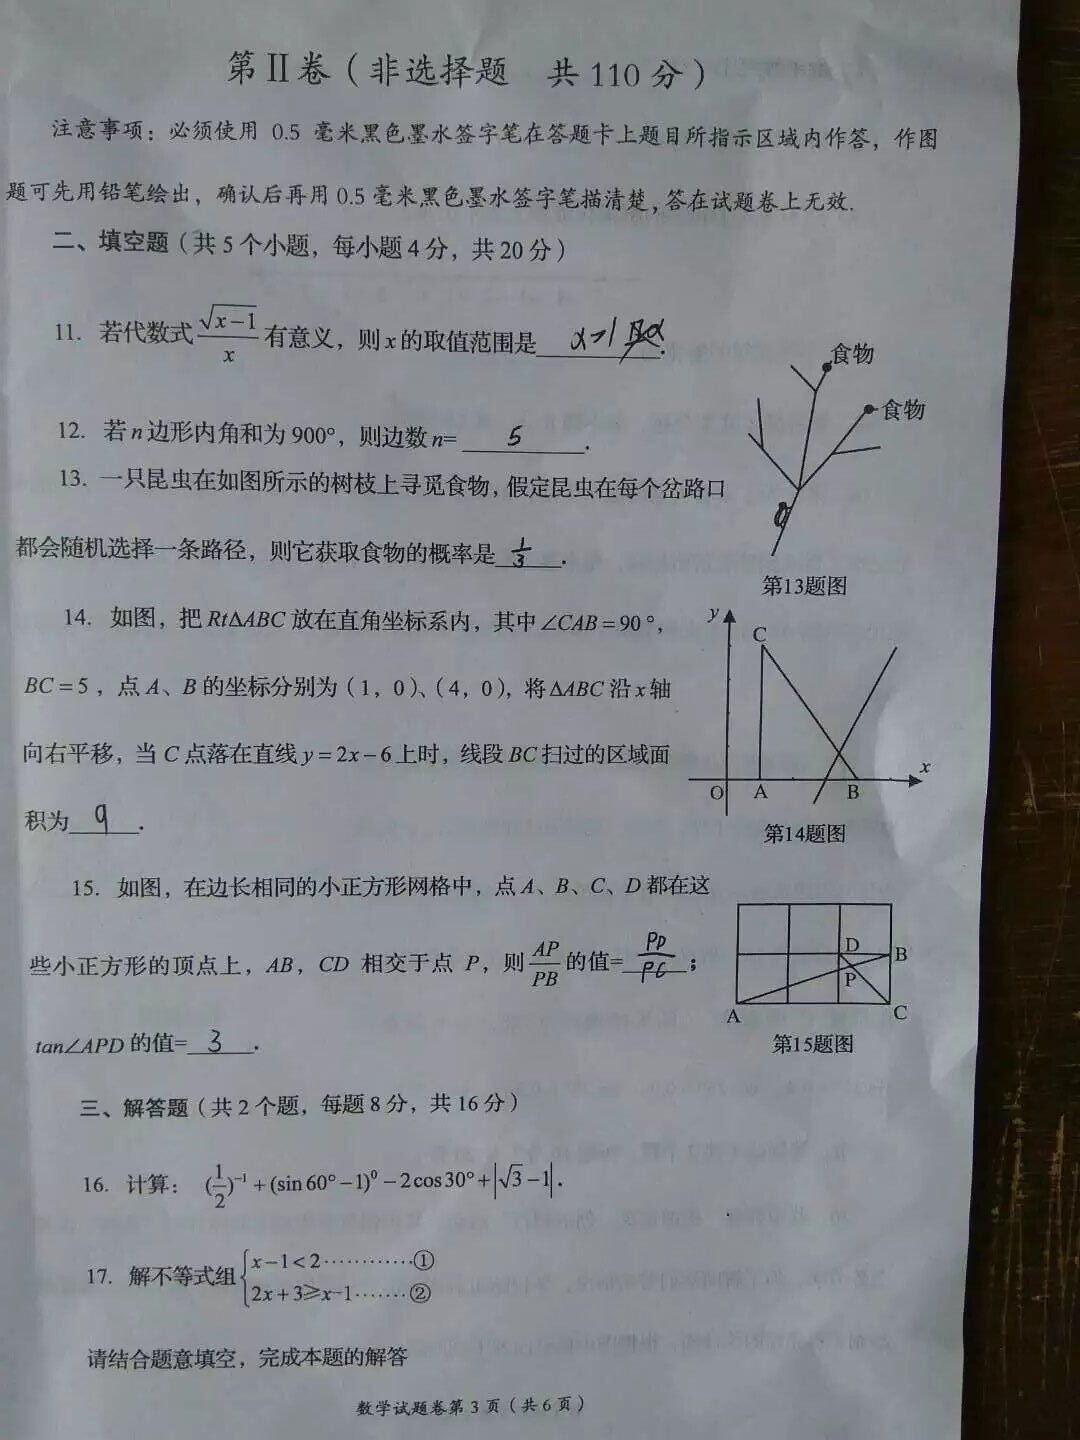 第Ⅱ卷（非选择题　共110分）
注意事项：必须使用 0.5 毫米黑色墨水签字笔在答题卡上题目所指示区域内作答，作图
题可先用铅笔绘出，确认后再用0.5毫米黑色墨水签字笔描清楚，答在试题卷上无效.
二、填空题（共5个小题，每小题4分，共20分）
11. 若代数式 √(x−1)/x 有意义，则x的取值范围是 x>1 .
食物
食物
12. 若n边形内角和为900°，则边数n= 5 .
13. 一只昆虫在如图所示的树枝上寻觅食物，假定昆虫在每个岔路口
都会随机选择一条路径，则它获取食物的概率是 1/3 .
第13题图
14. 如图，把Rt△ABC放在直角坐标系内，其中∠CAB=90°，
BC=5，点A、B的坐标分别为（1，0）、（4，0），将△ABC沿x轴
向右平移，当C点落在直线y=2x−6上时，线段BC扫过的区域面
积为 9 .
y
C
O A B x
第14题图
15. 如图，在边长相同的小正方形网格中，点A、B、C、D都在这
些小正方形的顶点上，AB，CD 相交于点 P，则 AP/PB 的值= PD/PC ；
tan∠APD的值= 3 .
D B
P
A C
第15题图
三、解答题（共2个题，每题8分，共16分）
16. 计算：(1/2)⁻¹+(sin60°−1)⁰−2cos30°+|√3−1|.
17. 解不等式组{x−1<2…………①
2x+3≥x-1……②
请结合题意填空，完成本题的解答
数学试题卷第3页（共6页）